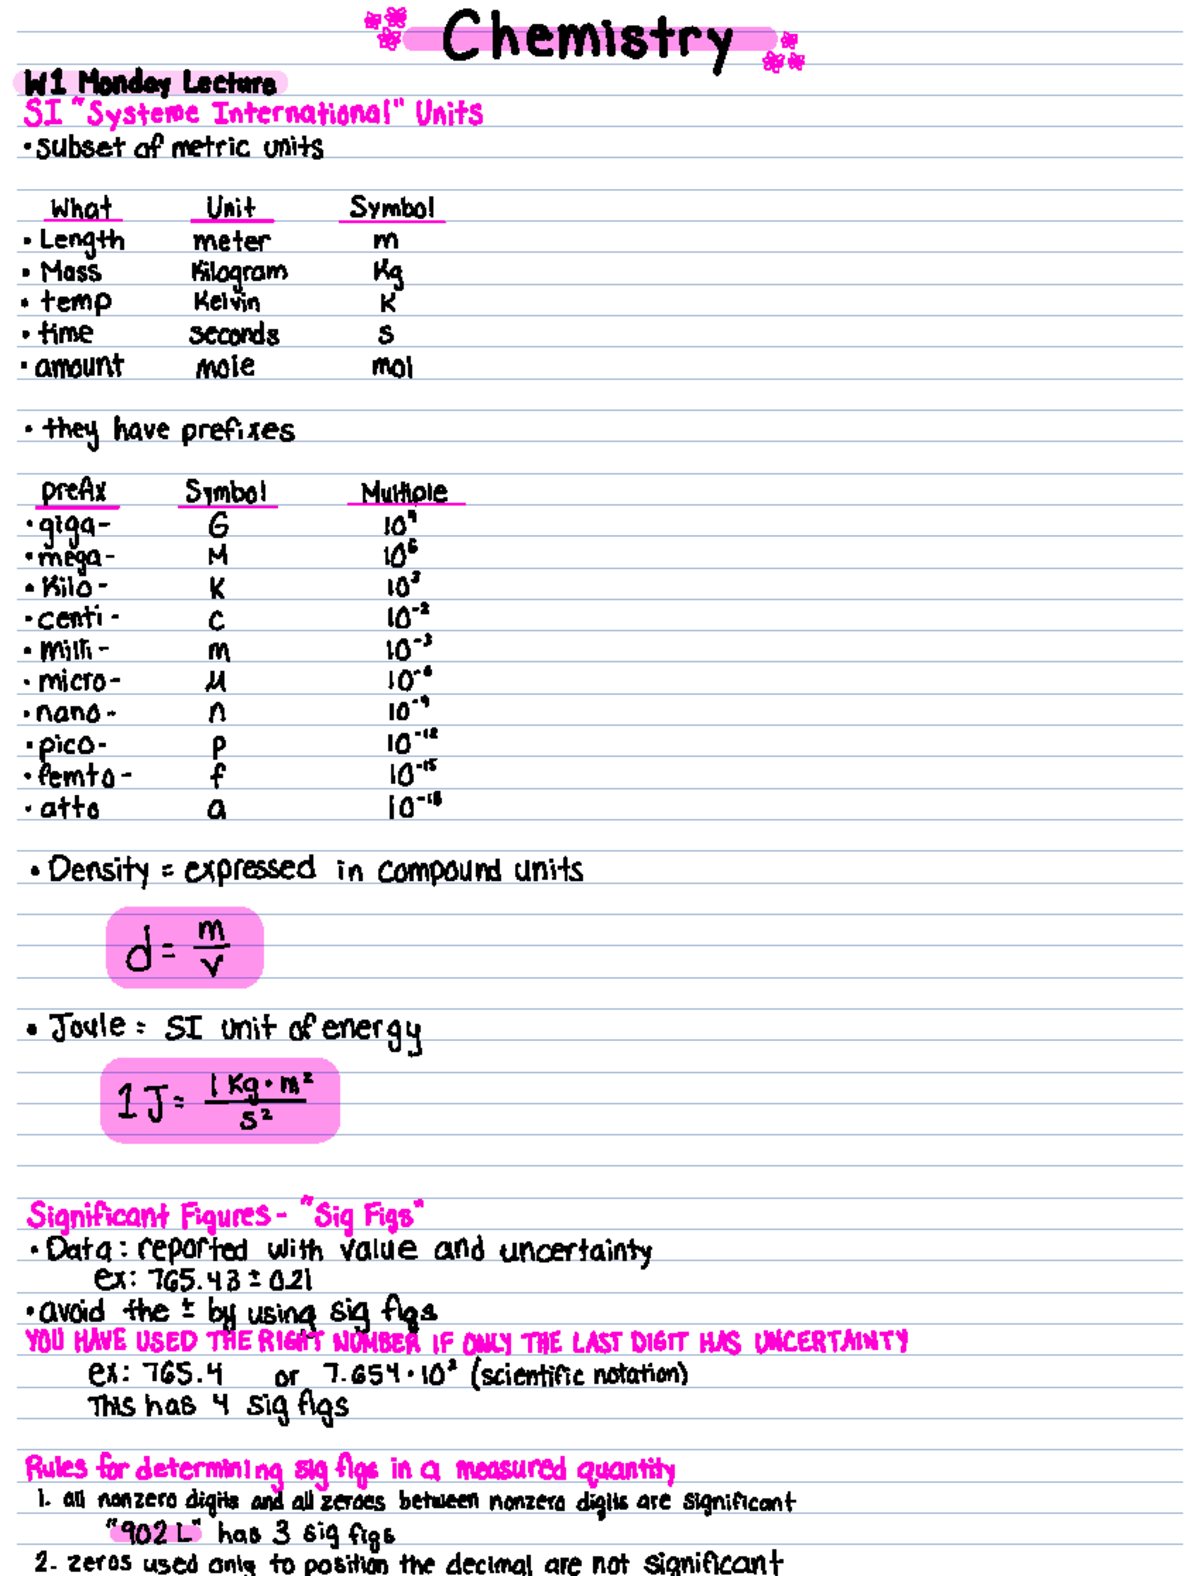 Chemistry
W1 Monday Lecture
SI "Systeme International" Units
• subset of metric units
What Unit Symbol
• Length meter m
• Mass Kilogram Kg
• temp Kelvin K
• time seconds s
• amount mole mol
• they have prefixes
prefix Symbol Multiple
• giga- G 10⁹
• mega- M 10⁶
• Kilo- K 10³
• centi- c 10⁻²
• milli- m 10⁻³
• micro- μ 10⁻⁶
• nano- n 10⁻⁹
• pico- p 10⁻¹²
• femto- f 10⁻¹⁵
• atto a 10⁻¹⁸
• Density = expressed in compound units
d = m/v
• Joule = SI unit of energy
1J = 1 Kg • m² / s²
Significant Figures - "Sig Figs"
• Data: reported with value and uncertainty
ex: 765.43 ± 0.21
• avoid the ± by using sig figs
YOU HAVE USED THE RIGHT NUMBER IF ONLY THE LAST DIGIT HAS UNCERTAINTY
ex: 765.4 or 7.654 • 10² (scientific notation)
This has 4 sig figs
Rules for determining sig figs in a measured quantity
1. all nonzero digits and all zeroes between nonzero digits are significant
"902 L" has 3 sig figs
2. zeros used only to position the decimal are not significant